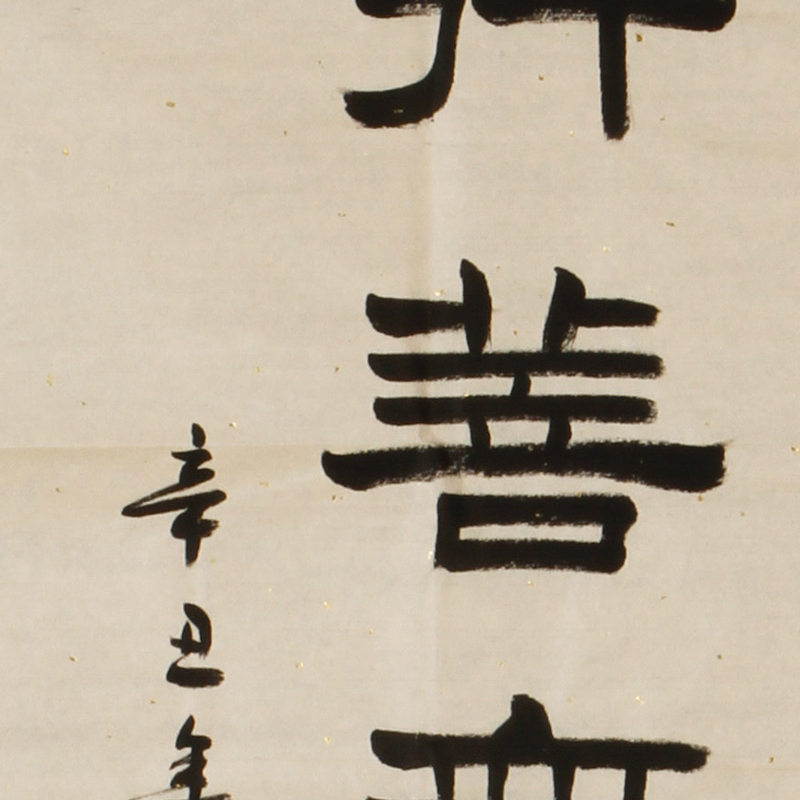 善無
辛丑年